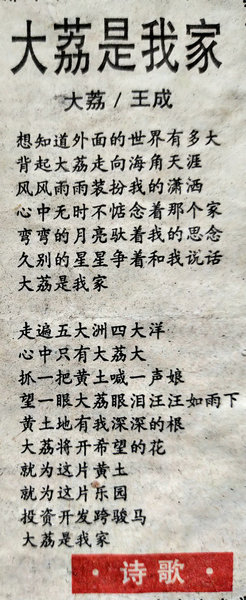 大荔是我家
大荔 / 王成
想知道外面的世界有多大
背起大荔走向海角天涯
风风雨雨装扮我的潇洒
心中无时不惦念着那个家
弯弯的月亮驮着我的思念
久别的星星争着和我说话
大荔是我家
走遍五大洲四大洋
心中只有大荔大
抓一把黄土喊一声娘
望一眼大荔眼泪汪汪如雨下
黄土地有我深深的根
大荔将开希望的花
就为这片黄土
就为这片乐园
投资开发跨骏马
大荔是我家
·诗歌·